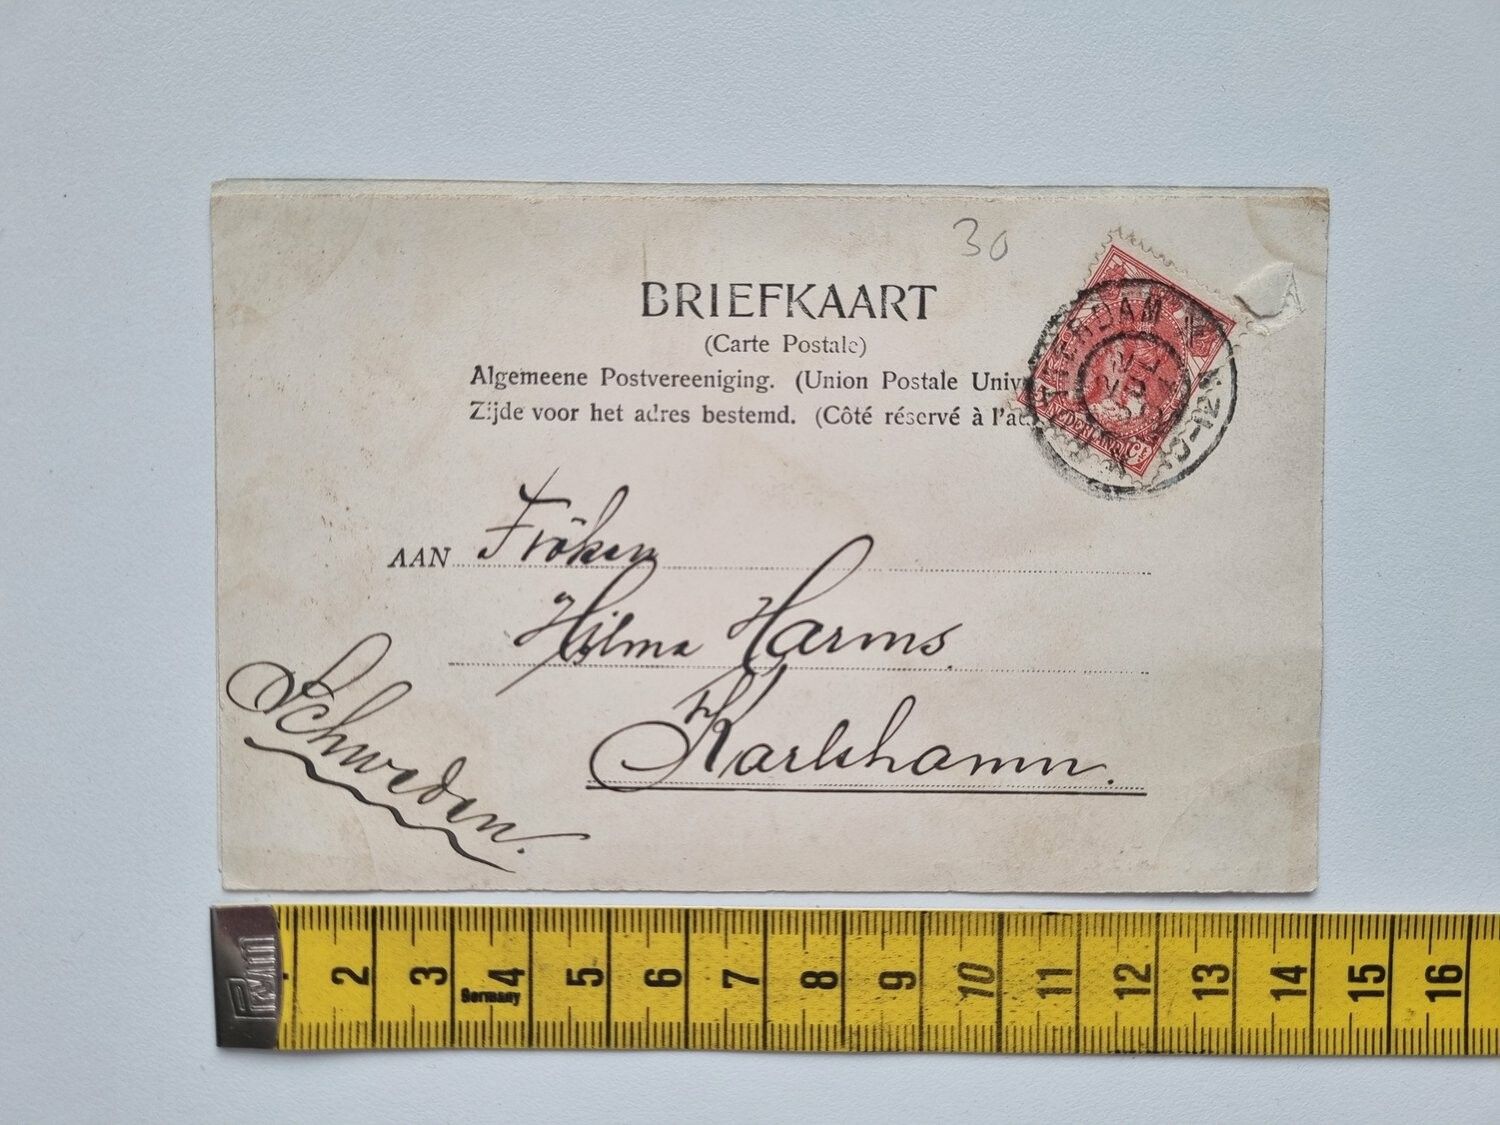 30
BRIEFKAART
(Carte Postale)
Algemeene Postvereeniging. (Union Postale Univ
Zijde voor het adres bestemd. (Côté réservé à l'ad
NEDERLAND
AAN Fröken
Hilma Harms.
Karlshamn.
Schweden.
Prym
2 3 4 5 6 7 8 9 10 11 12 13 14 15 16
Germany